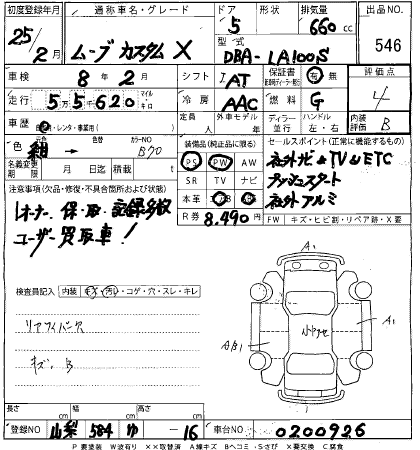 初度登録年月 通称車名・グレード ドア 形状 排気量 出品NO
25/2月 ムーブ カスタム X 5 660cc 546
型式 DBA-LA100S
車検 8年2月 シフト IAT 保証書 有 無 評価点
走行 55,620 マイル キロ 冷房 AAC 燃料 G 4
車歴 自家用・レンタ・事業用 定員 人 外車モデル 年 ディーラー 並行 ハンドル 左・右 内装 B
色 紺 元色 色替 カラーNO B70
装備品(純正品に限る) セールスポイント(正常に機能するもの)
PS PW AW 社外ナビ&TV&ETC
名義変更期限 月 日 積載 t
SR TV ナビ プッシュスタート
注意事項(欠品・修復・不具合箇所および状態)
本革 エアB 社外アルミ
1オーナー、保・取・記録多数
R券 8,490円
FW キズ・ヒビ割・リペア跡・X要
ユーザー買取車!
検査員記入 内装 キズ・汚レ・コゲ・穴・スレ・キレ
A1
A1
AB1
キズ・B
A1
長さ cm 幅 cm 高さ cm
登録NO 山梨 584 ゆ -16 車台NO 0200926
P 要塗装 W波有り ××取替済 A線キズ Bヘコミ・Sさび X要交換 C腐食